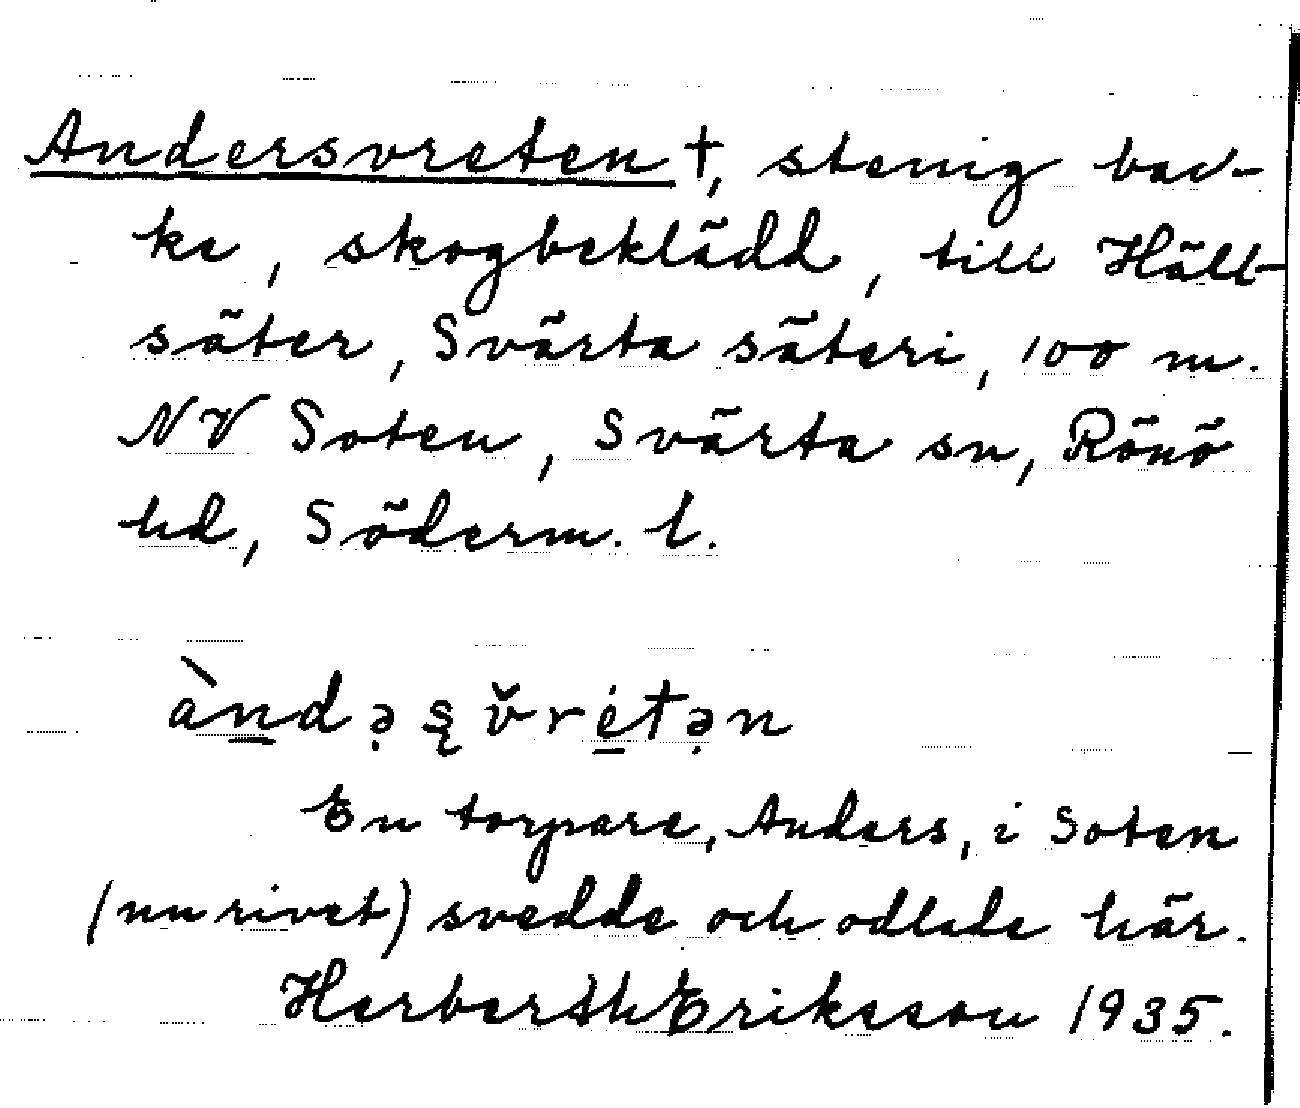 Andersvreten †, stenig bac-
ke, skogbeklädd, till Häll-
säter, Svärta säteri, 100 m.
NV Soten, Svärta sn, Rönö
hd, Söderm. l.
àndə̣ʂv̌rétə̣n
En torpare, Anders, i Soten
(nu rivet) svedde och odlade här.
Herberth Eriksson 1935.